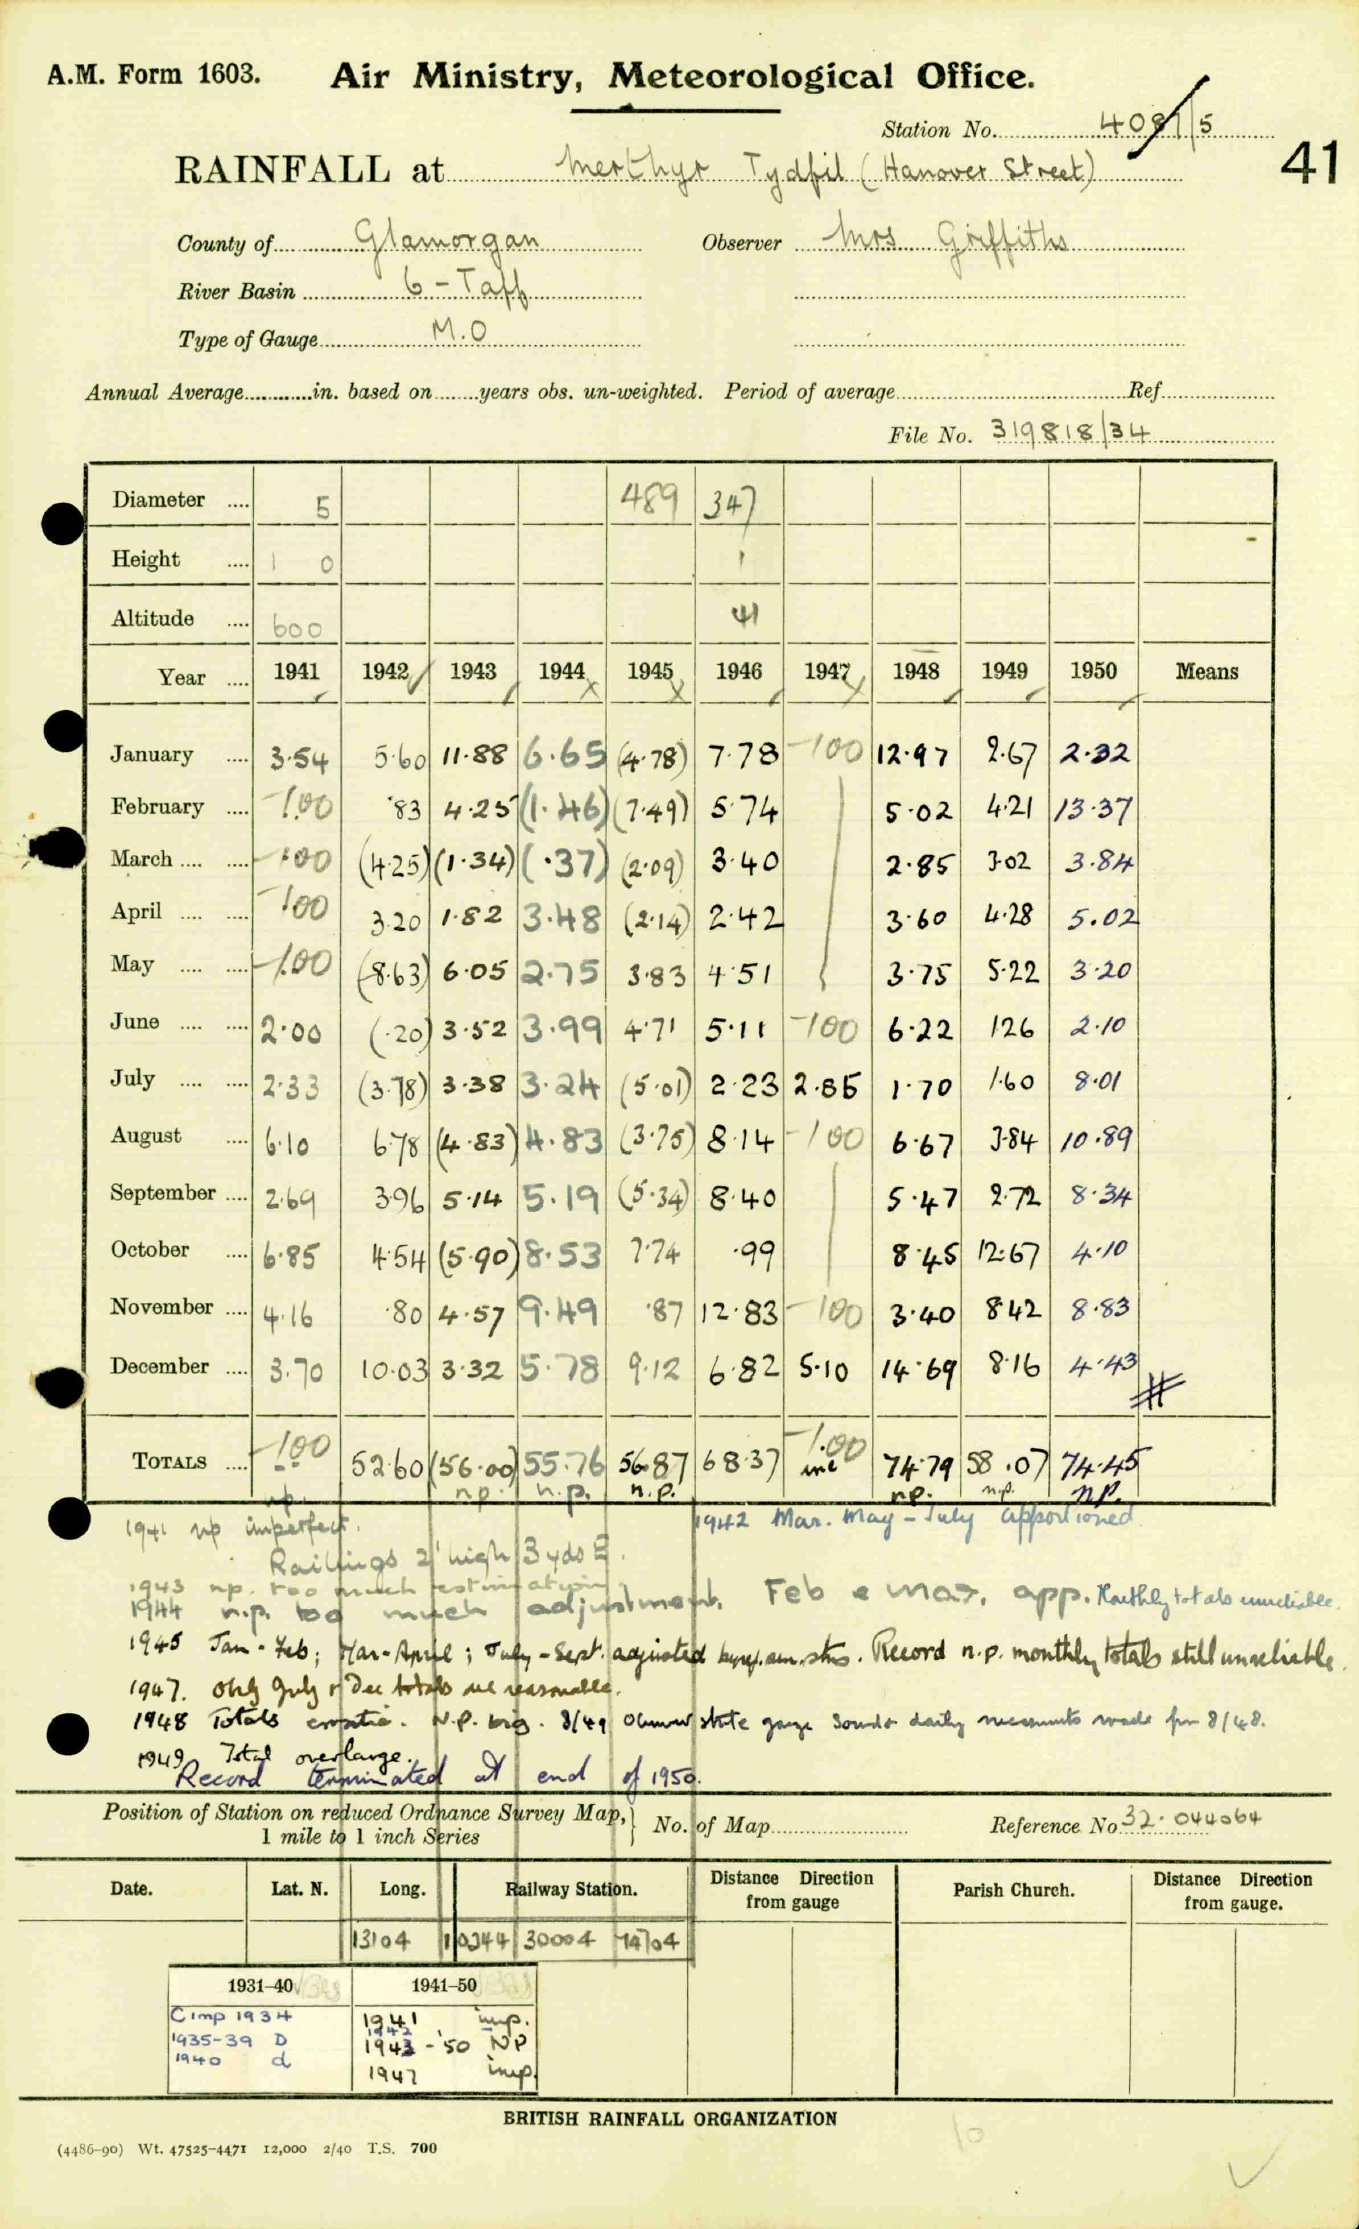 A.M. Form 1603. Air Ministry, Meteorological Office.
Station No. 4087/5
41
RAINFALL at Merthyr Tydfil (Hanover Street)
County of Glamorgan Observer Mrs Griffiths
River Basin 6 - Taff
Type of Gauge M.O
Annual Average in. based on years obs. un-weighted. Period of average Ref
File No. 319818/34
Diameter .... 5 489 347
Height .... 1 0 1
Altitude .... 600 41
Year .... 1941 1942 1943 1944 1945 1946 1947 1948 1949 1950 Means
January .... 3.54 5.60 11.88 6.65 (4.78) 7.78 -100 12.97 2.67 2.32
February .... -1.00 .83 4.25 (1.46) (7.49) 5.74 5.02 4.21 13.37
March .... .... -1.00 (4.25) (1.34) (.37) (2.09) 3.40 2.85 3.02 3.84
April .... .... -1.00 3.20 1.82 3.48 (2.14) 2.42 3.60 4.28 5.02
May .... .... -1.00 (8.63) 6.05 2.75 3.83 4.51 3.75 5.22 3.20
June .... .... 2.00 (.20) 3.52 3.99 4.71 5.11 -100 6.22 1.26 2.10
July .... .... 2.33 (3.78) 3.38 3.24 (5.01) 2.23 2.85 1.70 1.60 8.01
August .... 6.10 6.78 (4.83) 4.83 (3.75) 8.14 -100 6.67 3.84 10.89
September .... 2.69 3.96 5.14 5.19 (5.34) 8.40 5.47 2.72 8.34
October .... 6.85 4.54 (5.90) 8.53 7.74 .99 8.45 12.67 4.10
November .... 4.16 .80 4.57 9.49 .87 12.83 -100 3.40 8.42 8.83
December .... 3.70 10.03 3.32 5.78 9.12 6.82 5.10 14.69 8.16 4.43
TOTALS .... -1.00 52.60 (56.00) 55.76 56.87 68.37 -1.00 74.79 58.07 74.45
np. np. n.p. n.p. inc np. n.p. np.
1941 np imperfect. 1942 Mar. May - July apportioned
Railings 2' high 3 yds E.
1943 np. too much estimation
1944 n.p. too much adjustment. Feb & Mar. app. Monthly totals unreliable.
1945 Jan - Feb; Mar-April; July - Sept. adjusted by stns. Record n.p. monthly totals still unreliable.
1947. Only July & Dec totals are reasonable.
1948 Totals erratic. N.P. 8/49 Observer state gauge sound & daily measurements made for 8/48.
1949 Total overlarge.
Record terminated at end of 1950.
Position of Station on reduced Ordnance Survey Map, 1 mile to 1 inch Series } No. of Map Reference No 32.044064
Date. Lat. N. Long. Railway Station. Distance Direction from gauge Parish Church. Distance Direction from gauge.
13104 10344 30004 74704
1931-40 1941-50
C imp 1934 1941 imp.
1935-39 D 1942
1940 d 1943 - '50 NP
1947 imp.
BRITISH RAINFALL ORGANIZATION
(4486-90) Wt. 47525-4471 12,000 2/40 T.S. 700